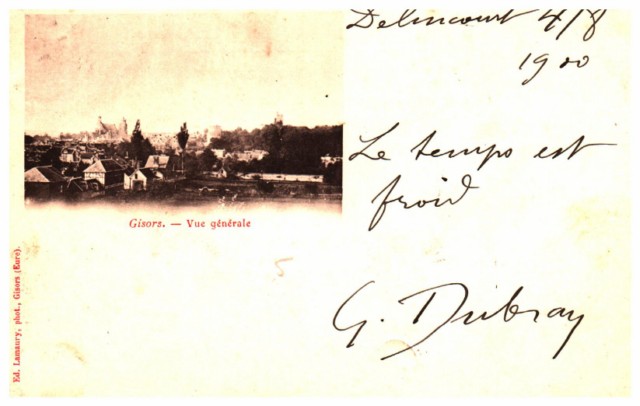 Delincourt 4/8
1900
Le temps est
froid
G. Dubray
Gisors. — Vue générale
5
Ed. Lamaury, phot., Gisors (Eure).